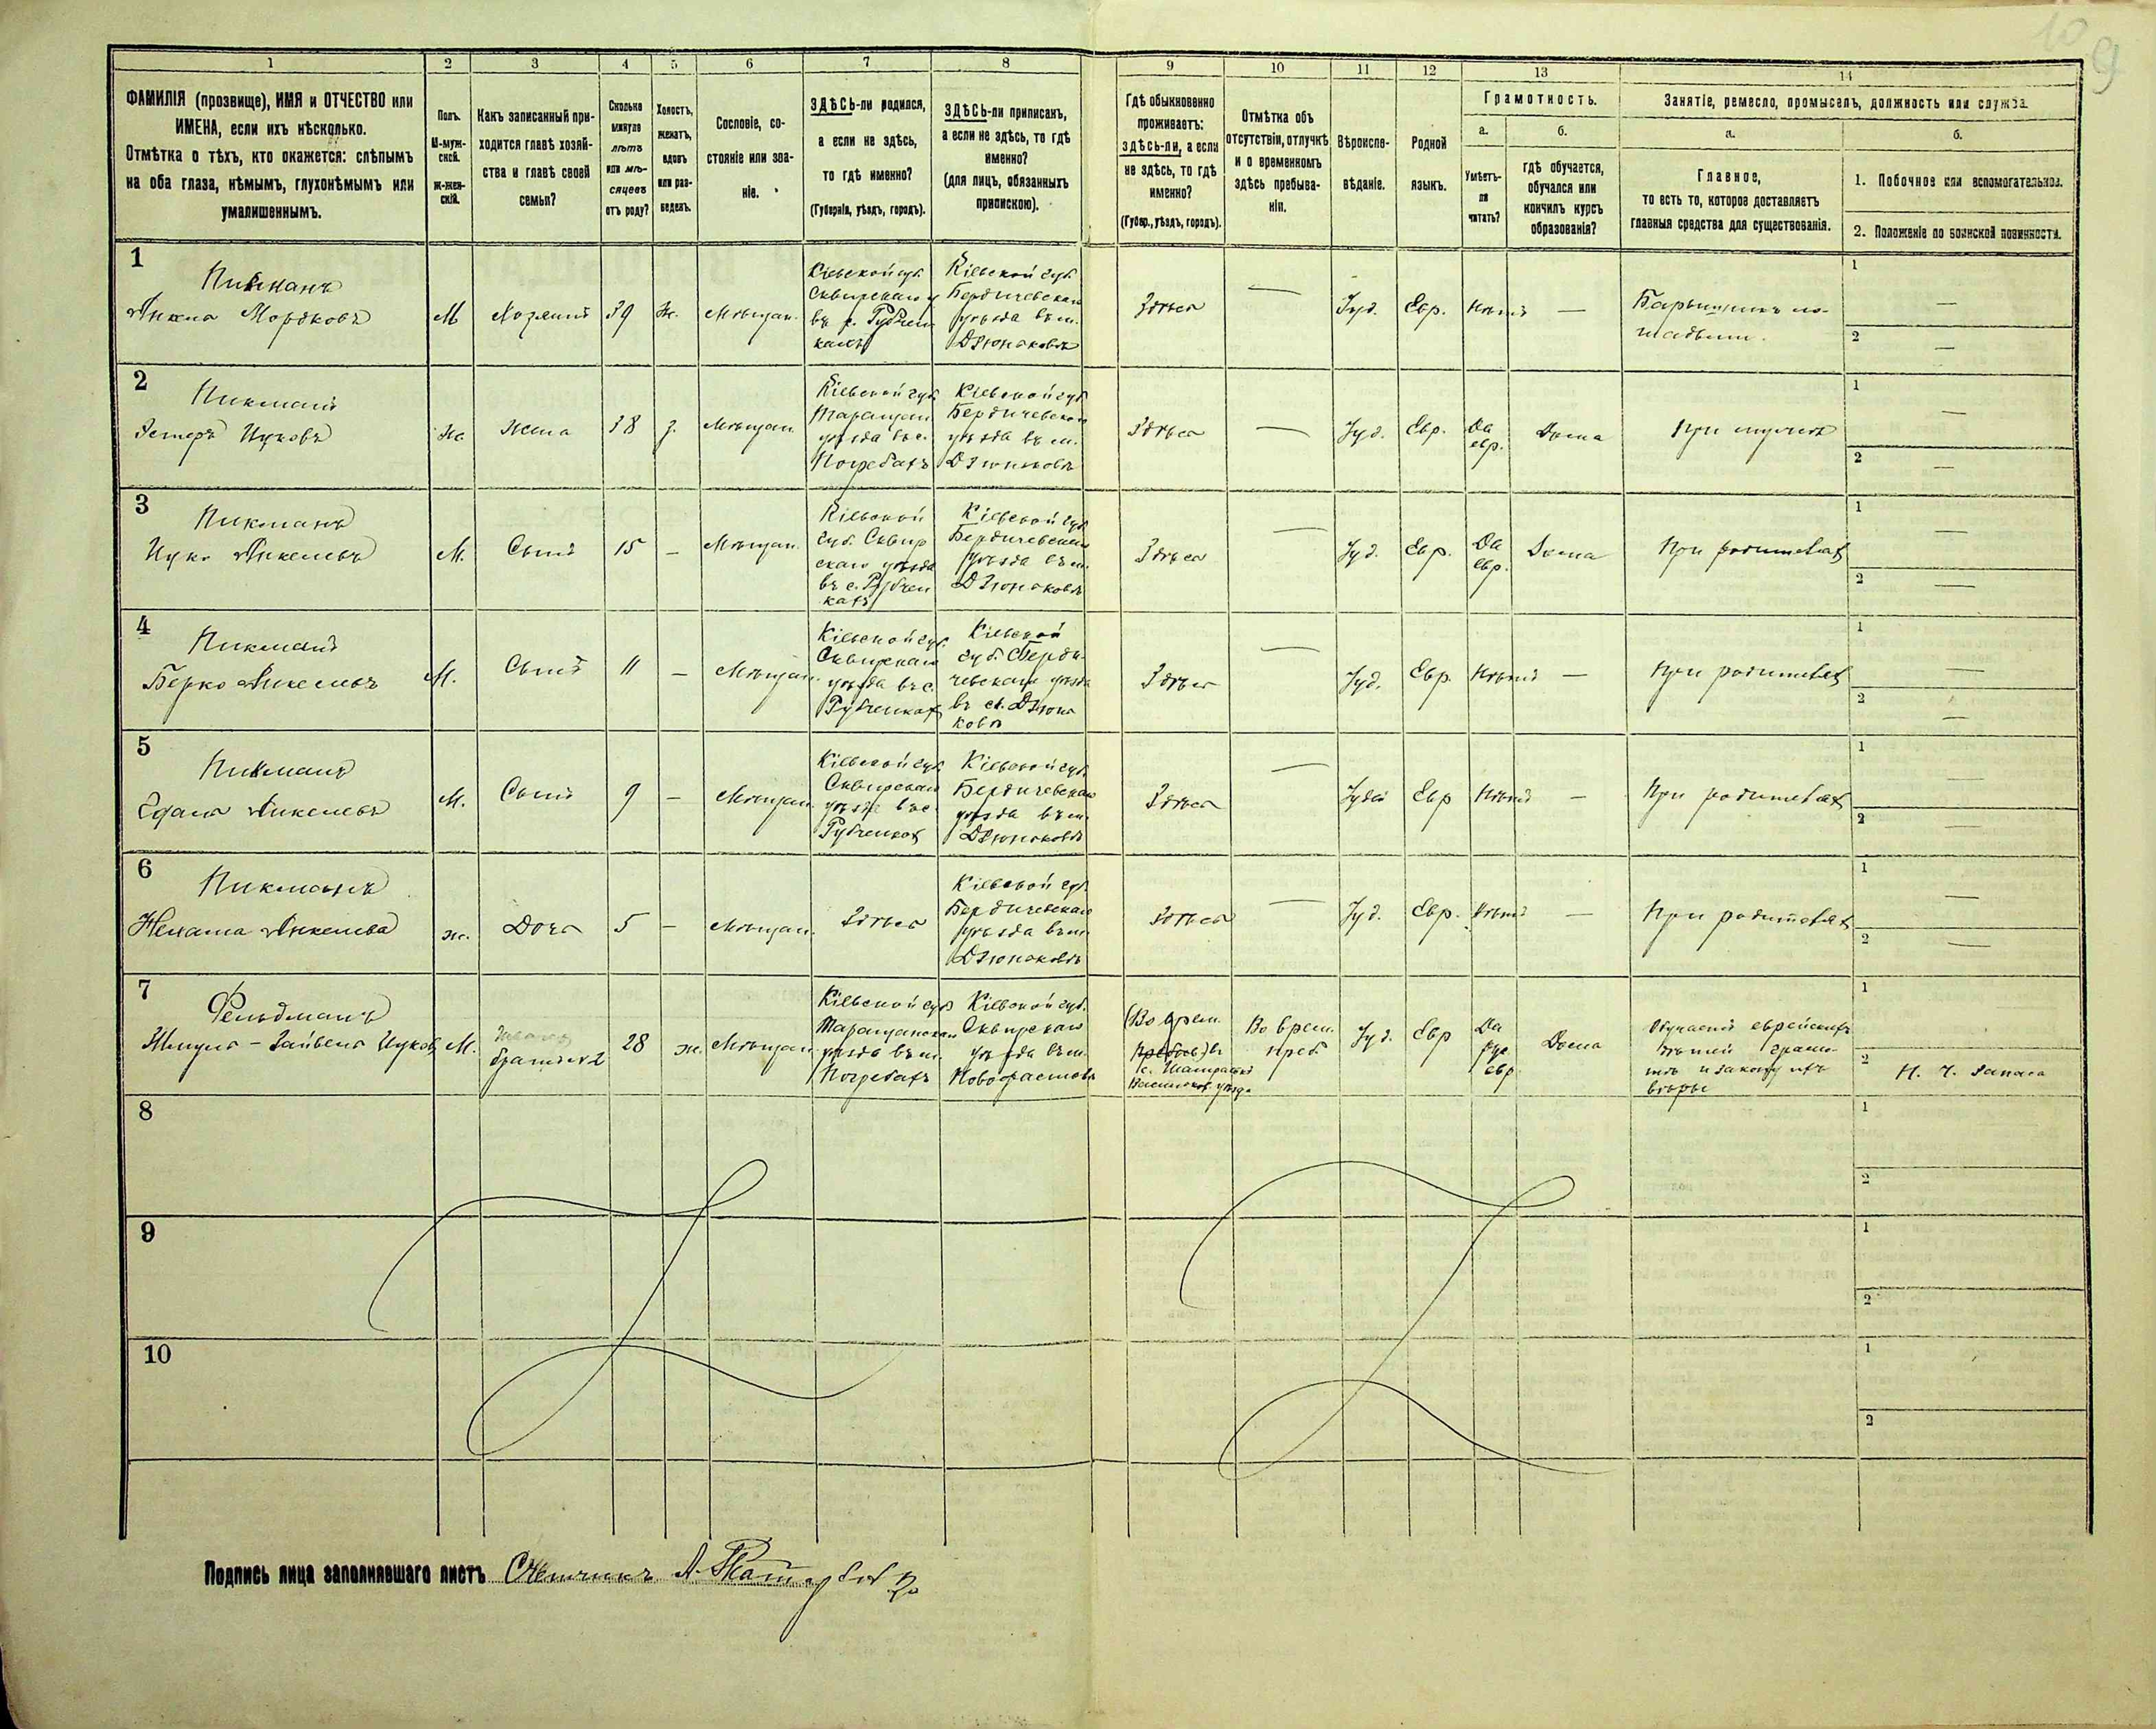 10 9
1 2 3 4 5 6 7 8 9 10 11 12 13 14
ФАМИЛІЯ (прозвище), ИМЯ и ОТЧЕСТВО или
ИМЕНА, если ихъ нѣсколько.
Отмѣтка о тѣхъ, кто окажется: слѣпымъ
на оба глаза, нѣмымъ, глухонѣмымъ или
умалишеннымъ.
Полъ.
М-муж-
ской.
Ж-жен-
скій.
Какъ записанный при-
ходится главѣ хозяй-
ства и главѣ своей
семьи?
Сколько
минуло
лѣтъ
или мѣ-
сяцевъ
отъ роду?
Холостъ,
женатъ,
вдовъ
или раз-
веденъ.
Сословіе, со-
стояніе или зва-
ніе.
ЗДѢСЬ-ли родился,
а если не здѣсь,
то гдѣ именно?
(Губернія, уѣздъ, городъ).
ЗДѢСЬ-ли приписанъ,
а если не здѣсь, то гдѣ
именно?
(для лицъ, обязанныхъ
припискою).
Гдѣ обыкновенно
проживаетъ:
здѣсь-ли, а если
не здѣсь, то гдѣ
именно?
(Губер., уѣздъ, городъ).
Отмѣтка объ
отсутствіи, отлучкѣ
и о временномъ
здѣсь пребыва-
ніи.
Вѣроиспо-
вѣданіе.
Родной
языкъ.
Грамотность.
а.
Умѣетъ-
ли
читать?
б.
гдѣ обучается,
обучался или
кончилъ курсъ
образованія?
Занятіе, ремесло, промыселъ, должность или служба.
а.
Главное,
то есть то, которое доставляетъ
главныя средства для существованія.
б.
1. Побочное или вспомогательное.
2. Положеніе по воинской повинности.
1
Пикманъ
Анкель Мордковъ
М
Хозяинъ
39
Ж.
Мѣщан.
Кіевской губ.
Сквирскаго у
въ с. Рубчен
кахъ
Кіевской губ.
Бердичевскаго
уѣзда въ м.
Дзюньковѣ
Здѣсь
—
Іуд.
Евр.
Нѣтъ
—
Барышникъ ло-
шадьми.
1
—
2
—
2
Пикманъ
Эстеръ Ицкова
ж
Жена
38
з.
Мѣщан.
Кіевской губ.
Таращан
уѣзда въ с.
Погребахъ
Кіевской губ.
Бердичевскаго
уѣзда въ м.
Дзюньковѣ
Здѣсь
—
Іуд.
Евр.
Да
евр.
Дома
При мужѣ
1
—
2
—
3
Пикманъ
Ицко Анкелевъ
М.
Сынъ
15
—
Мѣщан.
Кіевской
губ. Сквир
скаго уѣзда
въ с. Рубчен
кахъ
Кіевской губ.
Бердичевскаго
уѣзда въ м.
Дзюньковѣ
Здѣсь
—
Іуд.
Евр.
Да
евр.
Дома
При родителяхъ
1
—
2
—
4
Пикманъ
Берко Анкелевъ
М.
Сынъ
11
—
Мѣщан.
Кіевской губ.
Сквирскаго
уѣзда въ с.
Рубченкахъ
Кіевской
губ. Берди-
чевскаго уѣзда
въ м. Дзюнь
ковѣ
Здѣсь
—
Іуд.
Евр.
Нѣтъ
—
При родителяхъ
1
—
2
—
5
Пикманъ
Анкелевъ
М.
Сынъ
9
—
Мѣщан.
Кіевской губ.
Сквирскаго
уѣзда въ с.
Рубченкахъ
Кіевской губ.
Бердичевскаго
уѣзда въ м.
Дзюньковѣ
Здѣсь
Іудей
Евр
Нѣтъ
—
При родителяхъ
1
—
2
—
6
Пикманъ
Нехама Анкелева
ж.
Дочь
5
—
Мѣщан.
Здѣсь
Кіевской губ.
Бердичевскаго
уѣзда въ м.
Дзюньковѣ
Здѣсь
—
Іуд.
Евр.
Нѣтъ
—
При родителяхъ
1
—
2
—
7
Фельдманъ
Шмуль-Зайвель Ицковъ
М.
братъ № 2
28
ж.
Мѣщан.
Кіевской губ.
Таращанскаго
уѣзда въ м.
Погребахъ
Кіевской губ.
Сквирскаго
уѣзда въ м.
Новофастовѣ
Во врем.
преб
Іуд.
Евр
Да
рус
евр
Дома
Обучаетъ еврейскихъ
дѣтей грамо-
тѣ и закону ихъ
вѣры
1
2
Н. Ч. Запаса
8
1
2
9
1
2
10
1
2
Подпись лица заполнявшаго листъ Счетчикъ